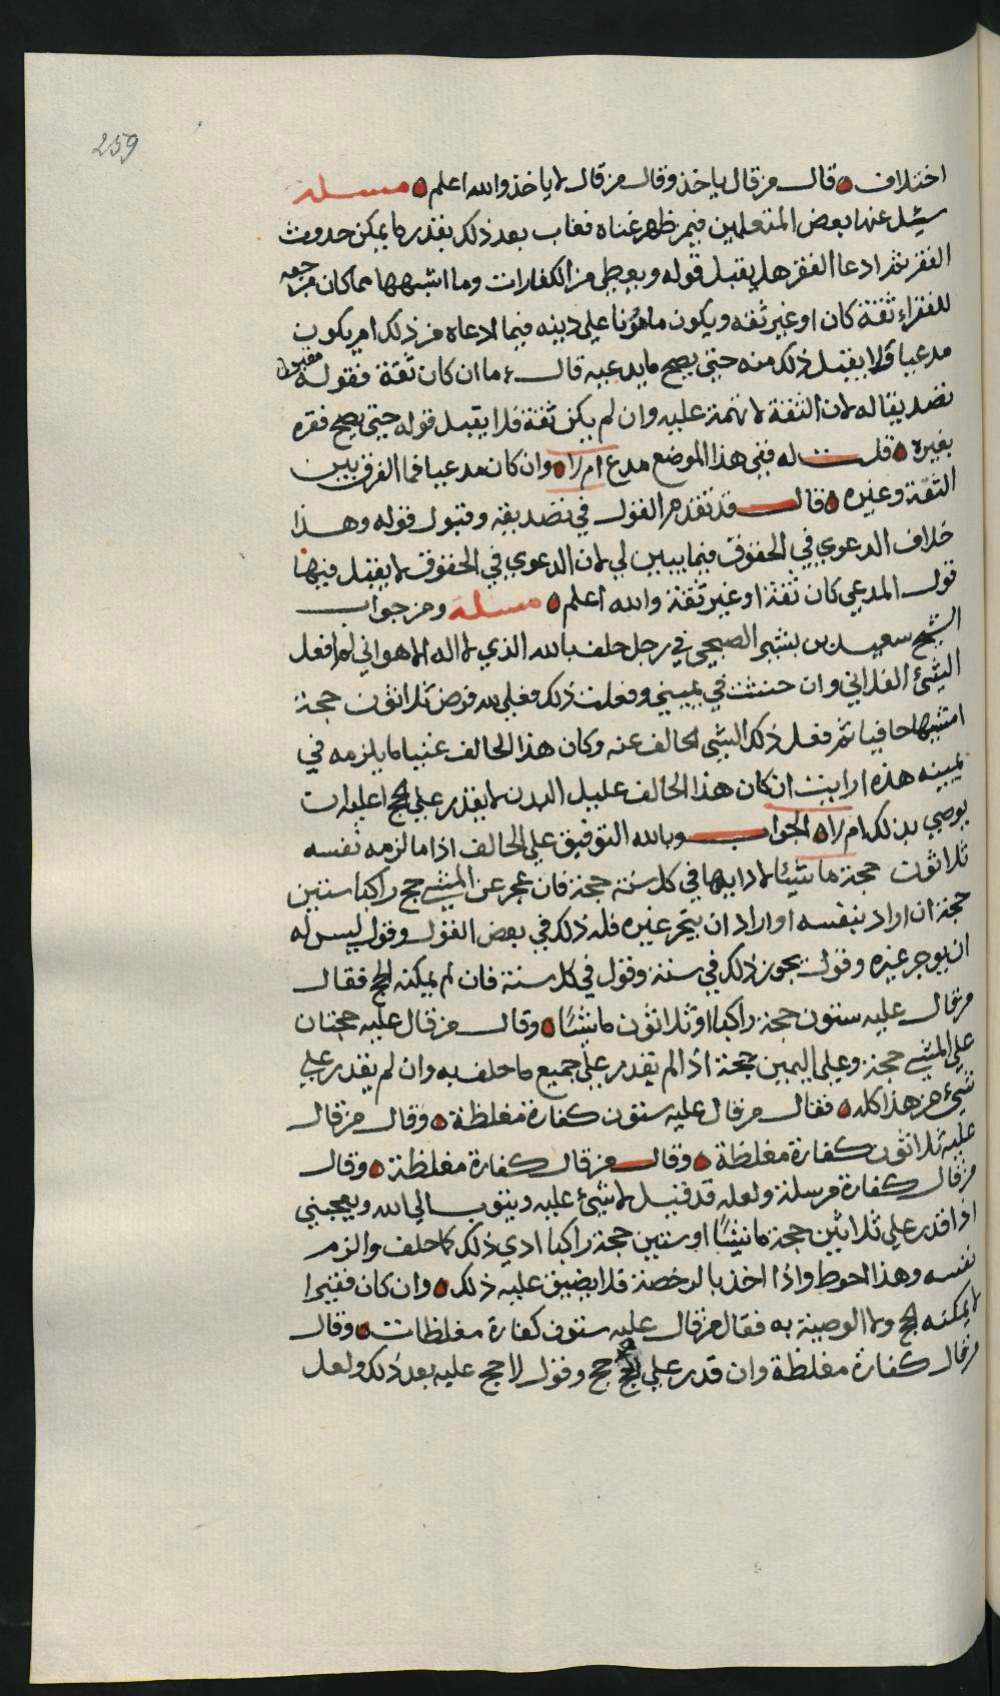 259
اختلاف ٥ قال من قال ياخذ وقال من قال لا ياخذ والله اعلم ٥ مسئلة
سئل عنها بعض المتعلمين فيمن ظهر غناه فغاب بعد ذلك بقدر ما يمكن حدوث
الفقر ثم ادعا الفقر هل يقبل قوله ويعطى من الكفارات وما اشبهها مما كان مرجعه
للفقراء ثقة كان او غير ثقه ويكون مامونا على دينه فيما ادعاه من ذلك ام يكون
مدعيا ولا يقبل ذلك منه حتى يصح ما يدعيه قال اما ان كان ثقة فقوله مقبول
تصديقا له لان الثقة لا تهمة عليه وان لم يكن ثقة فلا يقبل قوله حتى يصح فقره
بغيره ٥ قلت له ففي هذا الموضع مدع ام لا ٥ وان كان مدعيا فما الفرق بين
الثقة وغيره ٥ قال قد تقدم القول في تصديقه وقبول قوله وهذا
خلاف الدعوي في الحقوق فيما يبين لي لان الدعوي في الحقوق لا يقبل فيها
قول المدعي كان ثقة او غير ثقة والله اعلم ٥ مسئلة ومن جواب
الشيخ سعيد بن بشير الصبحي في رجل حلف بالله الذي لا اله الا هو اني لم افعل
الشئ الفلاني وان حنثت في يميني وفعلت ذلك فعلي لله فرض ثلاثون حجة
امشيها حافيا ثم فعل ذلك الشي الحالف عنه وكان هذا الحالف غنيا ما يلزمه في
يمينه هذه ارايت ان كان هذا الحالف عليل البدن لا يقدر علي الحج اعليه ان
يوصي بذلك ام لا ٥ الجواب وبالله التوفيق علي الحالف اذا ما لزمه نفسه
ثلاثون حجة ماشيًا لادايها في كل سنة حجة فان عجز عن المشي حج راكبا ستين
حجة ان اراد بنفسه او اراد ان يتجر غيره فله ذلك في بعض القول وقول ليس له
ان يوجر غيره وقول يجوز ذلك في سنة وقول في كل سنة فان لم يمكنه الحج فقال
من قال عليه ستون حجة راكبا او ثلاثون ماشيًا ٥ وقال من قال عليه حجتان
علي المشي حجة وعلي اليمين حجة اذا لم يقدر علي جميع ما حلف به وان لم يقدر علي
شيء من هذا كله ٥ فقال من قال عليه ستون كفارة مغلظة ٥ وقال من قال
عليه ثلاثون كفارة مغلظة ٥ وقال من قال كفارة مغلظة ٥ وقال
من قال كفارة مرسلة ولعله قد قيل لا شئ عليه ويتوب الي الله ويعجبني
اذا قدر علي ثلاثين حجة ماشيًا او ستين حجة راكبا ادي ذلك كما حلف والزم
نفسه وهذا احوط واذا اخذ بالرخصة فلا يضيق عليه ذلك ٥ وان كان فقيرا
لا يمكنه الحج ولا الوصية به فقال من قال عليه ستون كفارة مغلظات ٥ وقال
من قال كفارة مغلظة وان قدر علي الحج حج وقول لا حج عليه بعد ذلك ولعل